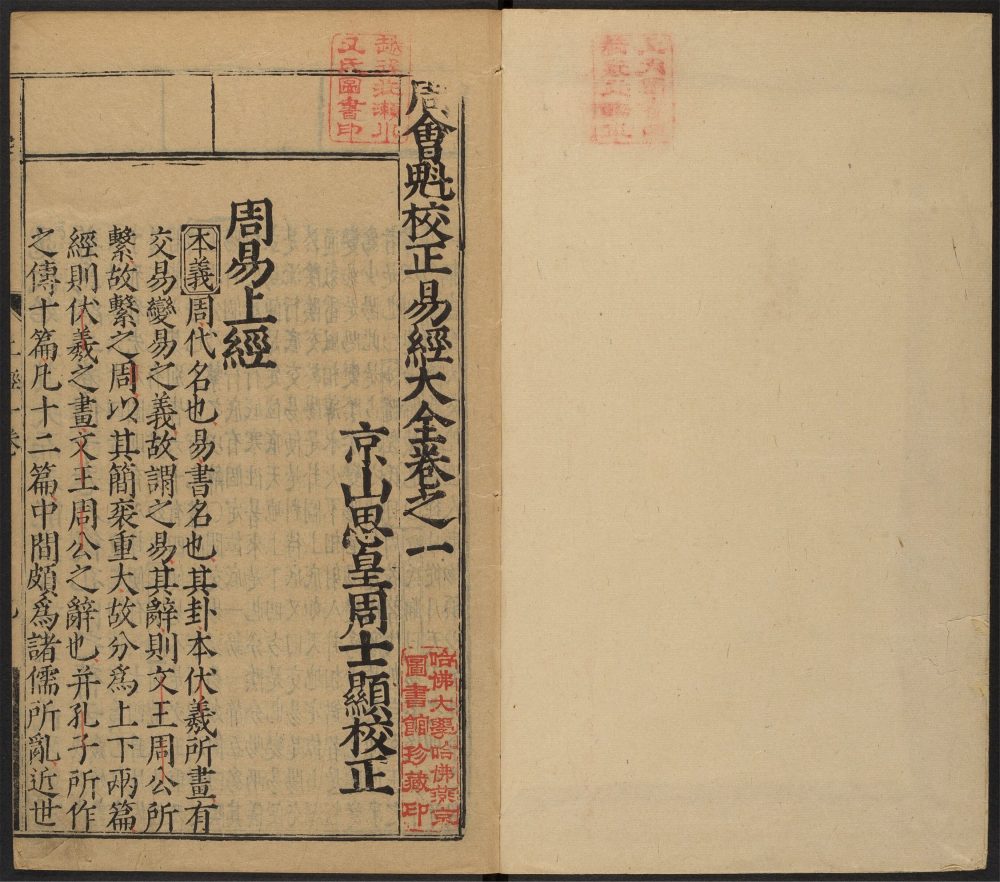 周會魁校正易經大全卷之一
京山思皇周士顯校正
周易上經
本義周代名也易書名也其卦本伏羲所畫有
交易變易之義故謂之易其辭則文王周公所
繫故繫之周以其簡袠重大故分爲上下兩篇
經則伏羲之畫文王周公之辭也并孔子所作
之傳十篇凡十二篇中間頗爲諸儒所亂近世
哈佛大學哈佛燕京
圖書館珍藏印
氏圖書印